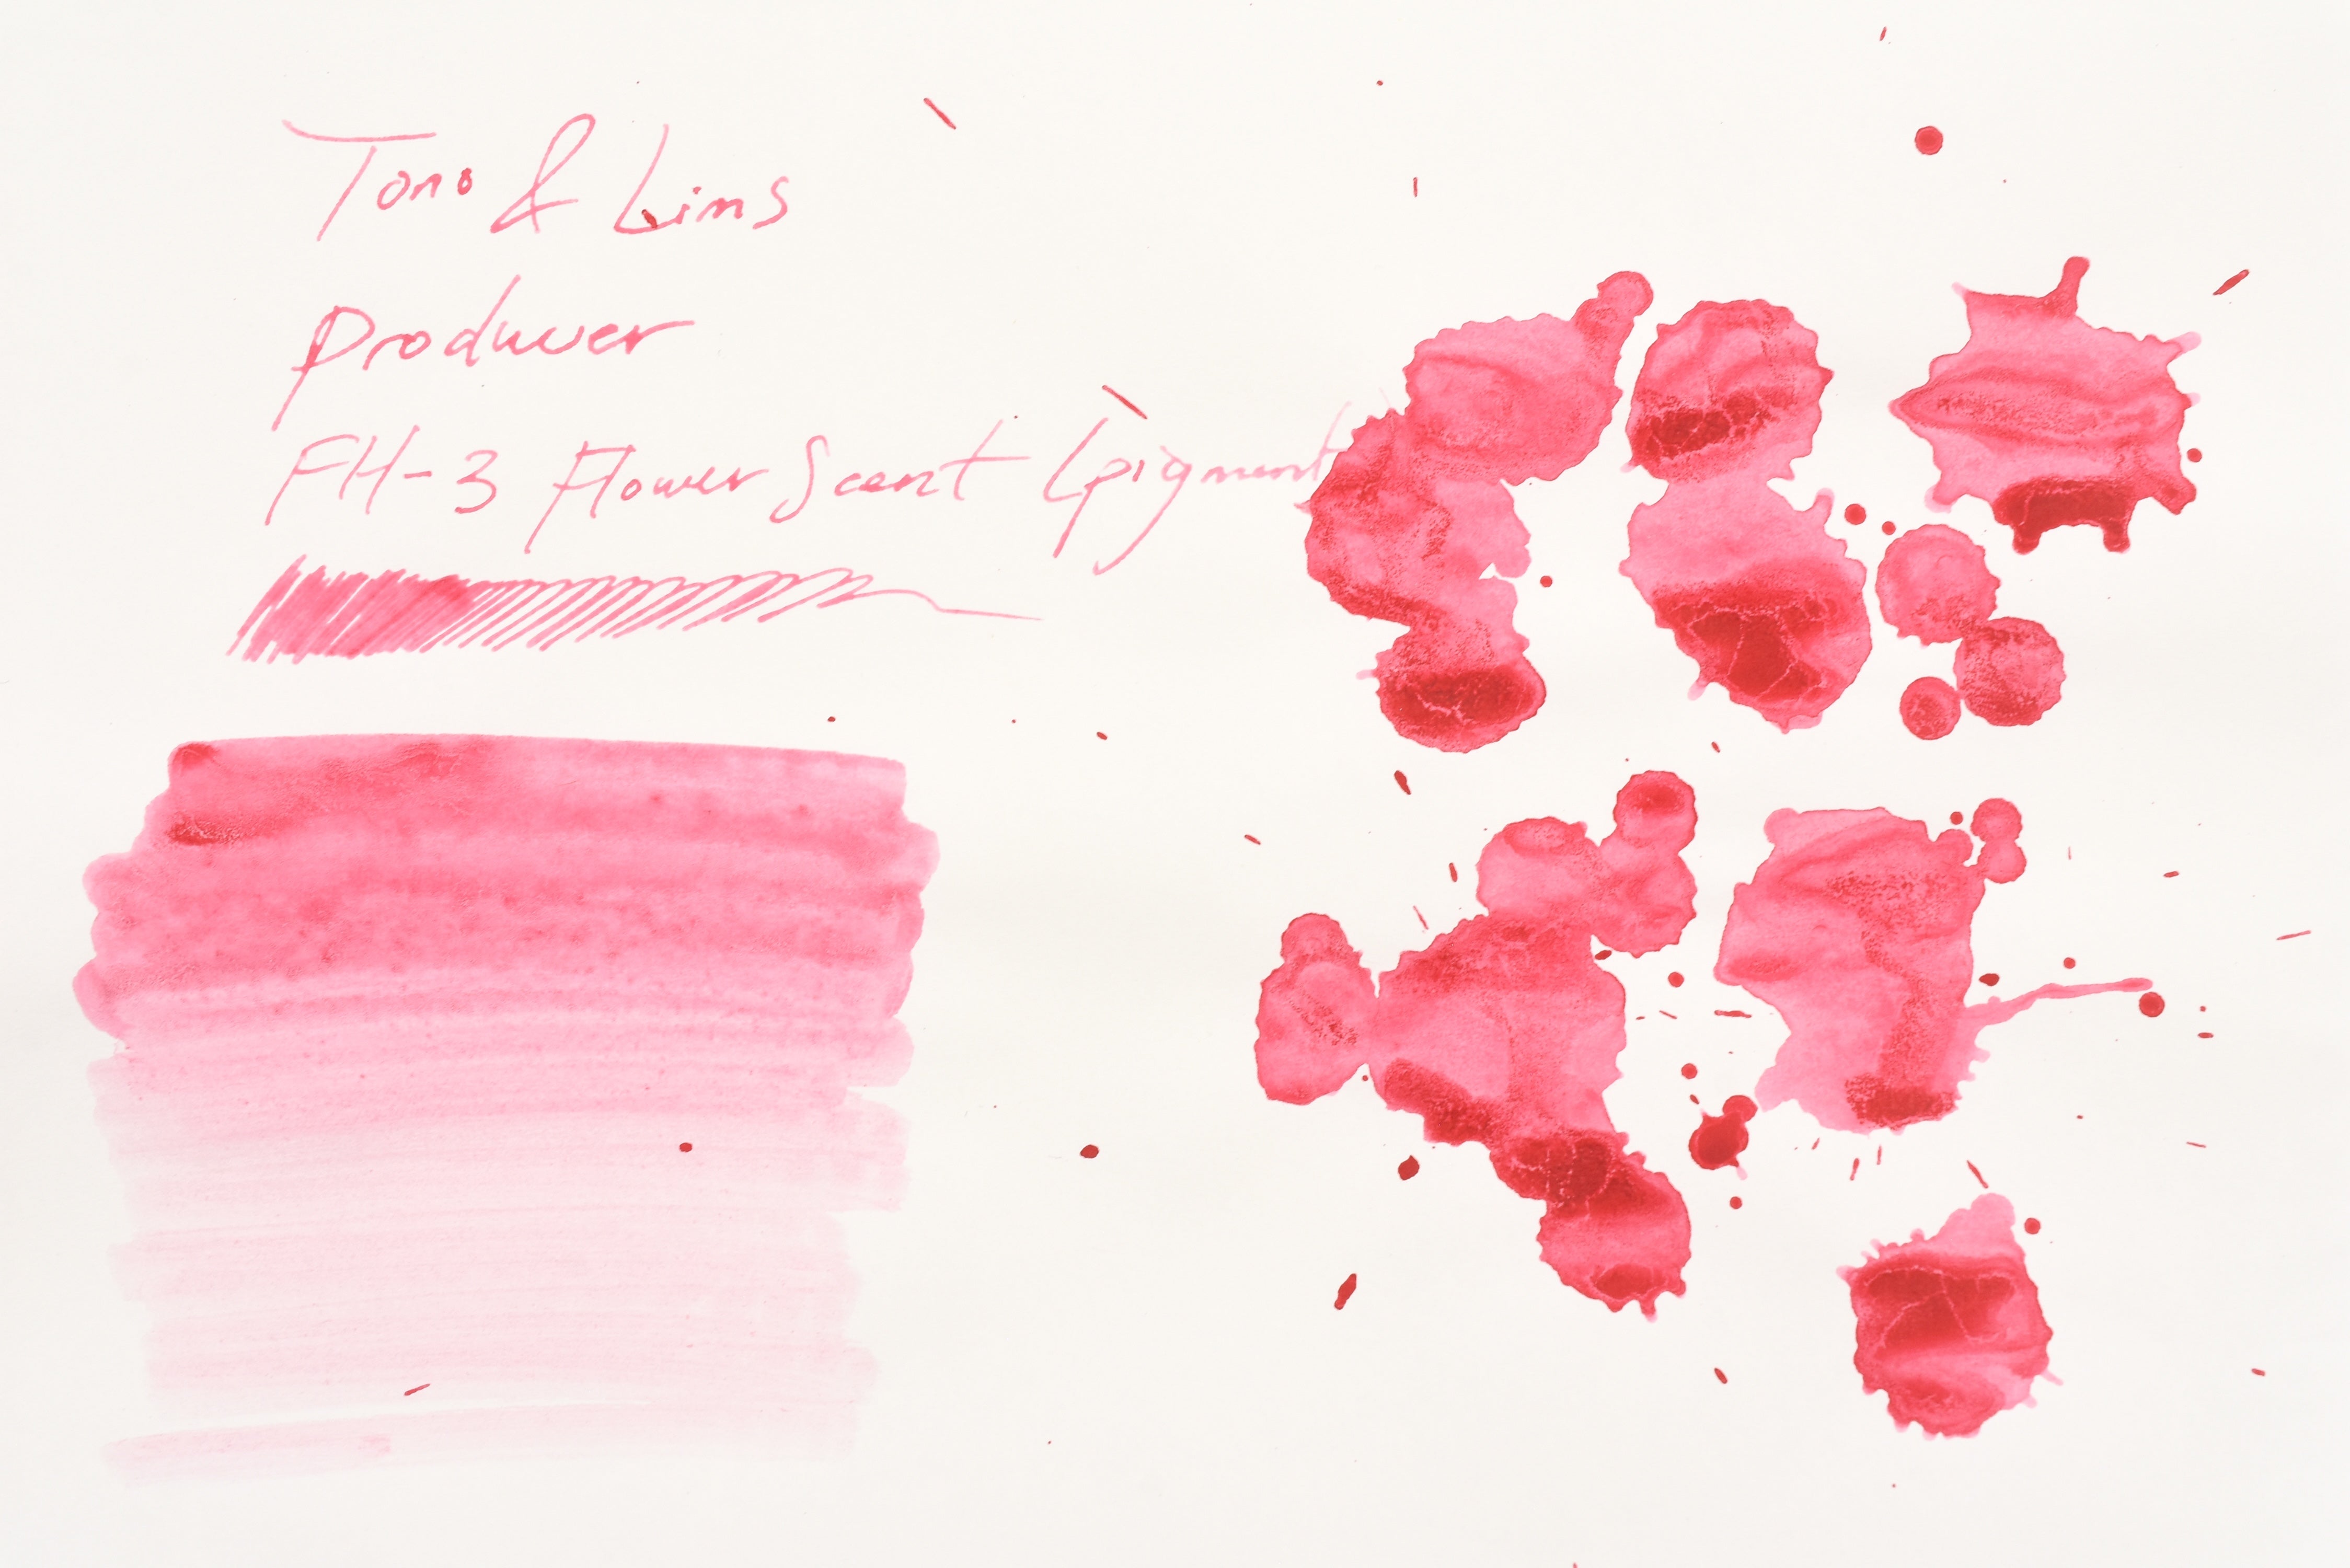 Tono & Lims
Producer
FH-3 Flower Scent (pigment